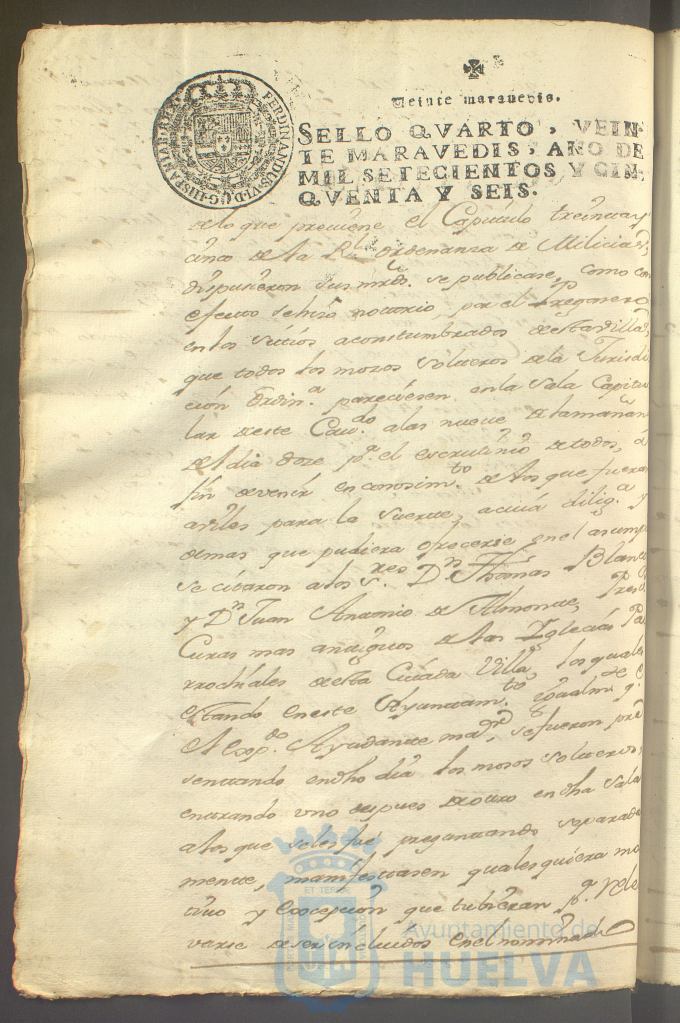 Veinte maravedis.
SELLO QVARTO, VEIN-
TE MARAVEDIS, AÑO DE
MIL SETECIENTOS Y CIN-
QVENTA Y SEIS.
FERDINANDUS·VI·D·G·HISPANIAR·REX
de lo que previene el Capitulo treinta y
cinco de la Rl. Ordenanza de Milicias,
dispusieron sus mrds. se publicase, como con
efecto se hizo notorio, por el Pregonero
en los sitios acostumbrados de esta villa,
que todos los mozos solteros de la Jurisdi
cion Ordin.a pareciesen en la Sala Capitu
lar de este Cav.do a las nueve de la mañana
del dia doze pa. el escrutinio de todos, a
fin de venir en conosim.to de los que fueran
aviles para la suerte, a cuia dilig.a y
demas que pudiera ofrecerse en el asump
se citaron a los S.res Dn. Thomas Blanco
y Dn. Juan Antonio de Almonte, Pres
Curas mas antiguos de las Iglecias Pa
rrochiales de esta Citada Villa, los quales
estando en este Ayuntam.to igualm.te q.
el exp.do Ayudante mar. se fueron pre
sentando en dho dia los mozos solteros,
entrando uno despues de otro en dha Sala
a los que se les fue preguntando separada
mente, manifestasen quales quiera mo
tivo y excepcion que tubieran pa. rele
varse de ser incluidos en el nominado
Ayuntamiento de
HUELVA